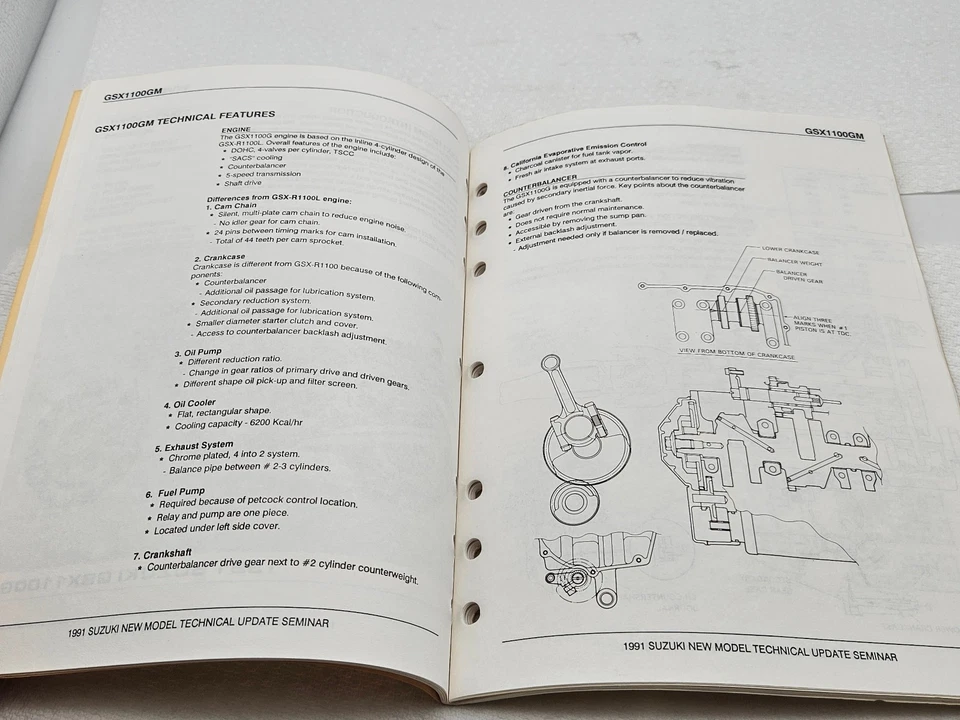 GSX1100GM
GSX1100GM TECHNICAL FEATURES
ENGINE
The GSX1100G engine is based on the inline 4-cylinder design of the
GSX-R1100L. Overall features of the engine include:
* DOHC, 4-valves per cylinder, TSCC
* "SACS" cooling
* Counterbalancer
* 5-speed transmission
* Shaft drive
Differences from GSX-R1100L engine:
1. Cam Chain
* Silent, multi-plate cam chain to reduce engine noise.
- No idler gear for cam chain.
* 24 pins between timing marks for cam installation.
- Total of 44 teeth per cam sprocket.
2. Crankcase
Crankcase is different from GSX-R1100 because of the following com-
ponents:
* Counterbalancer
- Additional oil passage for lubrication system.
* Secondary reduction system.
- Additional oil passage for lubrication system.
* Smaller diameter starter clutch and cover.
- Access to counterbalancer backlash adjustment.
3. Oil Pump
* Different reduction ratio.
- Change in gear ratios of primary drive and driven gears.
* Different shape oil pick-up and filter screen.
4. Oil Cooler
* Flat, rectangular shape.
* Cooling capacity - 6200 Kcal/hr
5. Exhaust System
* Chrome plated, 4 into 2 system.
- Balance pipe between # 2-3 cylinders.
6. Fuel Pump
* Required because of petcock control location.
* Relay and pump are one piece.
* Located under left side cover.
7. Crankshaft
* Counterbalancer drive gear next to #2 cylinder counterweight.
1991 SUZUKI NEW MODEL TECHNICAL UPDATE SEMINAR
GSX1100GM
8. California Evaporative Emission Control
* Charcoal canister for fuel tank vapor.
* Fresh air intake system at exhaust ports.
COUNTERBALANCER
The GSX1100G is equipped with a counterbalancer to reduce vibration
caused by secondary inertial force. Key points about the counterbalancer
are:
* Gear driven from the crankshaft.
* Does not require normal maintenance.
* Accessible by removing the sump pan.
* External backlash adjustment.
- Adjustment needed only if balancer is removed / replaced.
LOWER CRANKCASE
BALANCER WEIGHT
BALANCER
DRIVEN GEAR
ALIGN THREE
MARKS WHEN #1
PISTON IS AT TDC.
VIEW FROM BOTTOM OF CRANKCASE
1991 SUZUKI NEW MODEL TECHNICAL UPDATE SEMINAR